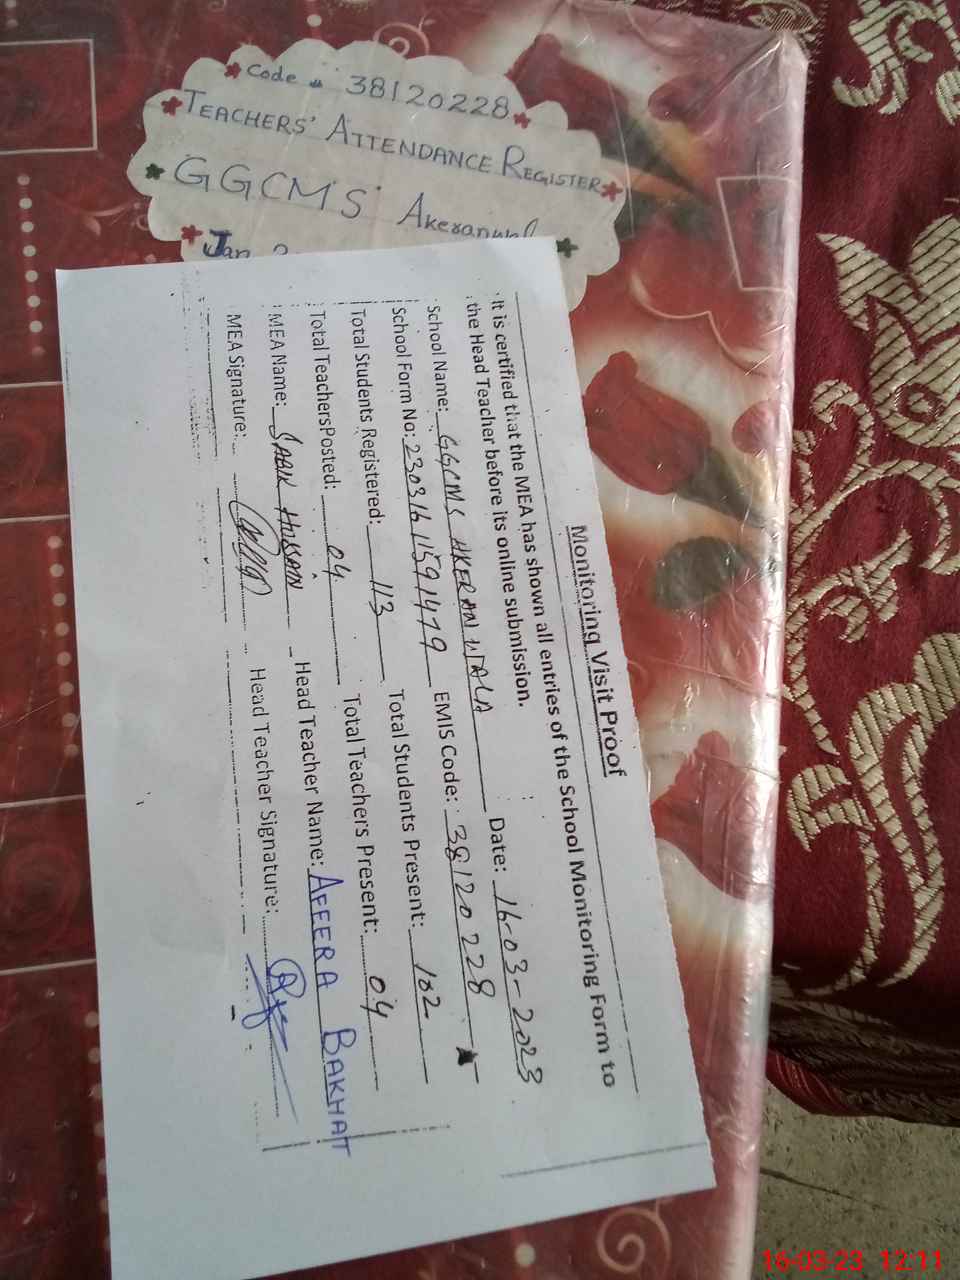 Code 38120228
TEACHERS' ATTENDANCE REGISTER
GGCMS
Jan
Monitoring Visit Proof
It is certified that the MEA has shown all entries of the School Monitoring Form to
the Head Teacher before its online submission.
Date: 16-03-2023
School Name: GGCMS AKERANWALA
School Form No: 23031611591479 EMIS Code: 38120228
Total Students Registered: 113 Total Students Present: 102
Total TeachersPosted: 04 Total Teachers Present: 04
MEA Name: HUSSAIN Head Teacher Name: AFEERA BAKHAT
MEA Signature: Head Teacher Signature:
16-03-23 12:11